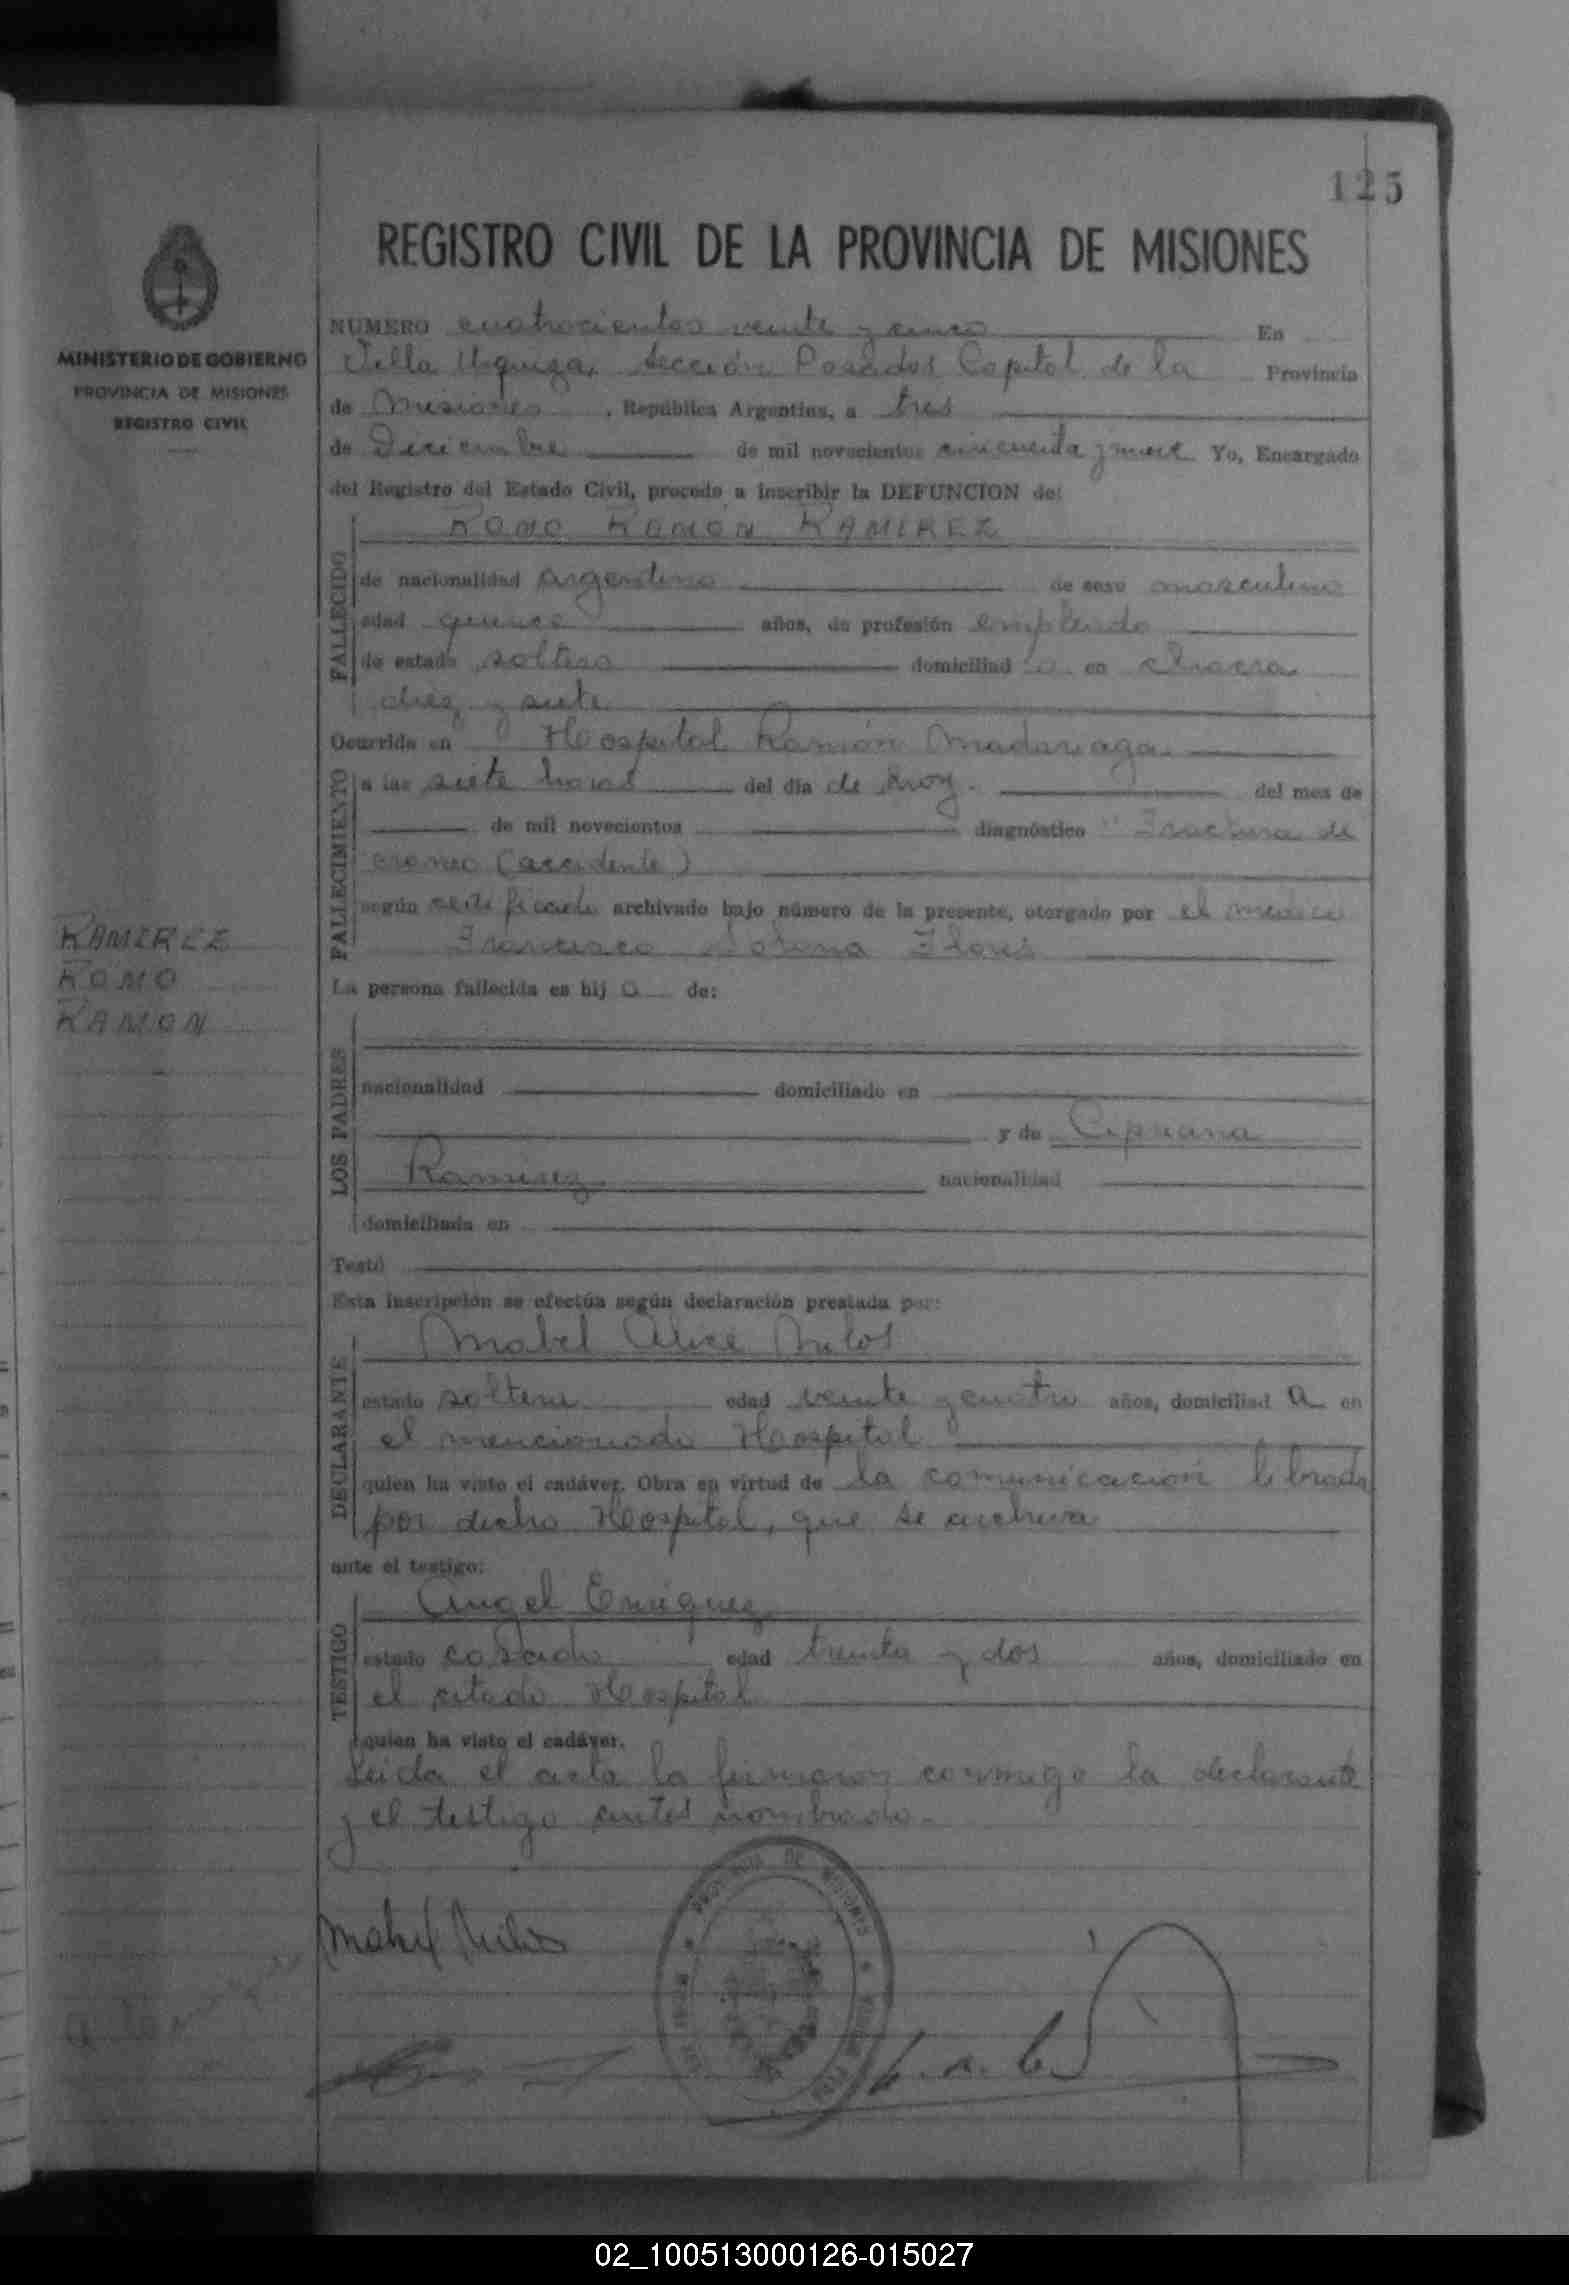 125
REGISTRO CIVIL DE LA PROVINCIA DE MISIONES
MINISTERIO DE GOBIERNO
PROVINCIA DE MISIONES
REGISTRO CIVIL
NUMERO cuatrocientos veinte y cinco En
Villa Urquiza, Sección Posadas Capital de la Provincia
de Misiones, República Argentina, a tres
de Diciembre de mil novecientos cincuenta y nueve Yo, Encargado
del Registro del Estado Civil, procedo a inscribir la DEFUNCION de:
FALLECIDO
ROMO RAMON RAMIREZ
de nacionalidad argentino de sexo masculino
edad quince años, de profesión empleado
de estado soltero domiciliado en chacra
diez y siete
Ocurrida en Hospital Ramón Madariaga
FALLECIMIENTO
a las siete horas del día de hoy. del mes de
de mil novecientos diagnóstico "Fractura de
craneo (accidente)
según certificado archivado bajo número de la presente, otorgado por el medico
Francisco Flores
RAMIREZ
ROMO
RAMON
La persona fallecida es hijo de:
LOS PADRES
nacionalidad domiciliado en
y de Cipriana
Ramirez nacionalidad
domiciliada en
Testó
Esta inscripción se efectúa según declaración prestada por:
DECLARANTE
Mabel Alice Milos
estado soltera edad veinte y cuatro años, domiciliada en
el mencionado Hospital
quien ha visto el cadáver. Obra en virtud de la comunicación librada
por dicho Hospital, que se archiva
ante el testigo:
TESTIGO
Angel Enriquez
estado casado edad treinta y dos años, domiciliado en
el citado Hospital
quien ha visto el cadáver.
Leida el acta la firmaron conmigo la declarante
y el testigo antes nombrado.-
PROVINCIA DE MISIONES
02_100513000126-015027